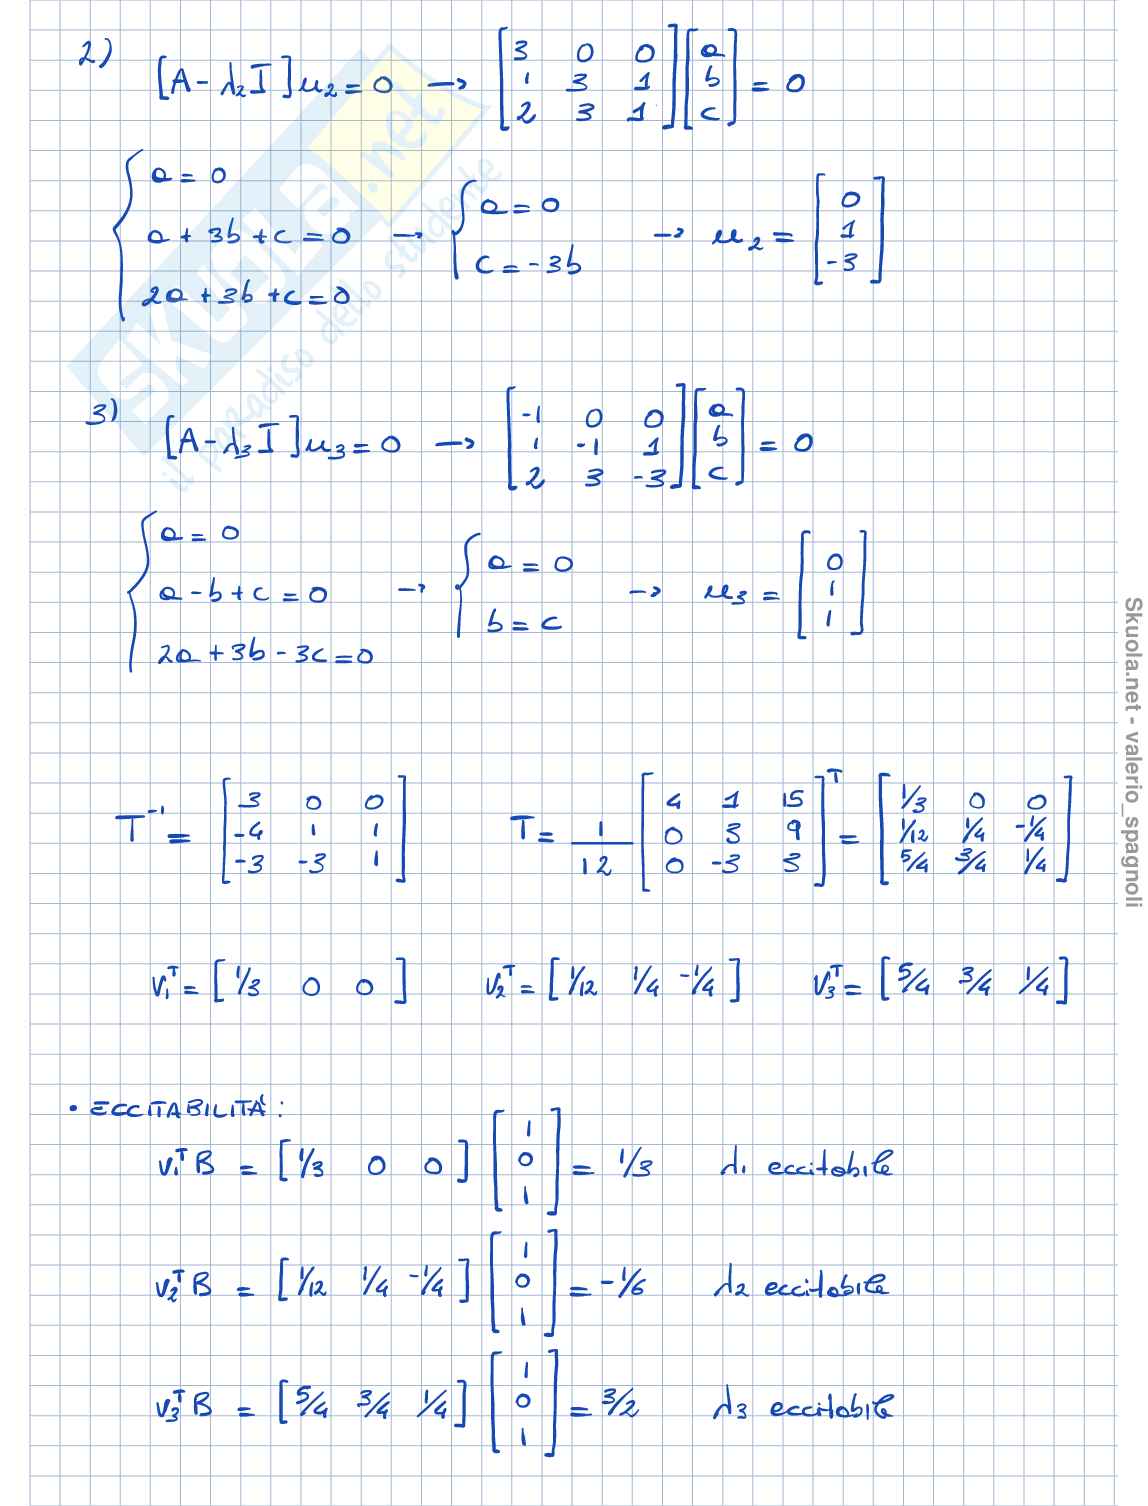 2) [A - λ₂I]u₂ = 0 → [3 0 0; 1 3 1; 2 3 1][a; b; c] = 0
{a = 0; a + 3b + c = 0; 2a + 3b + c = 0 → {a = 0; c = -3b → u₂ = [0; 1; -3]
3) [A - λ₃I]u₃ = 0 → [-1 0 0; 1 -1 1; 2 3 -3][a; b; c] = 0
{a = 0; a - b + c = 0; 2a + 3b - 3c = 0 → {a = 0; b = c → u₃ = [0; 1; 1]
T⁻¹ = [3 0 0; -4 1 1; -3 -3 1] T = 1/12 [4 1 15; 0 3 9; 0 -3 3]ᵀ = [1/3 0 0; 1/12 1/4 -1/4; 5/4 3/4 1/4]
v₁ᵀ = [1/3 0 0] v₂ᵀ = [1/12 1/4 -1/4] v₃ᵀ = [5/4 3/4 1/4]
• ECCITABILITÁ:
v₁ᵀB = [1/3 0 0][1; 0; 1] = 1/3 λ₁ eccitabile
v₂ᵀB = [1/12 1/4 -1/4][1; 0; 1] = -1/6 λ₂ eccitabile
v₃ᵀB = [5/4 3/4 1/4][1; 0; 1] = 3/2 λ₃ eccitabile
SKUOLA.net
il paradiso dello studente
Skuola.net - valerio_spagnoli